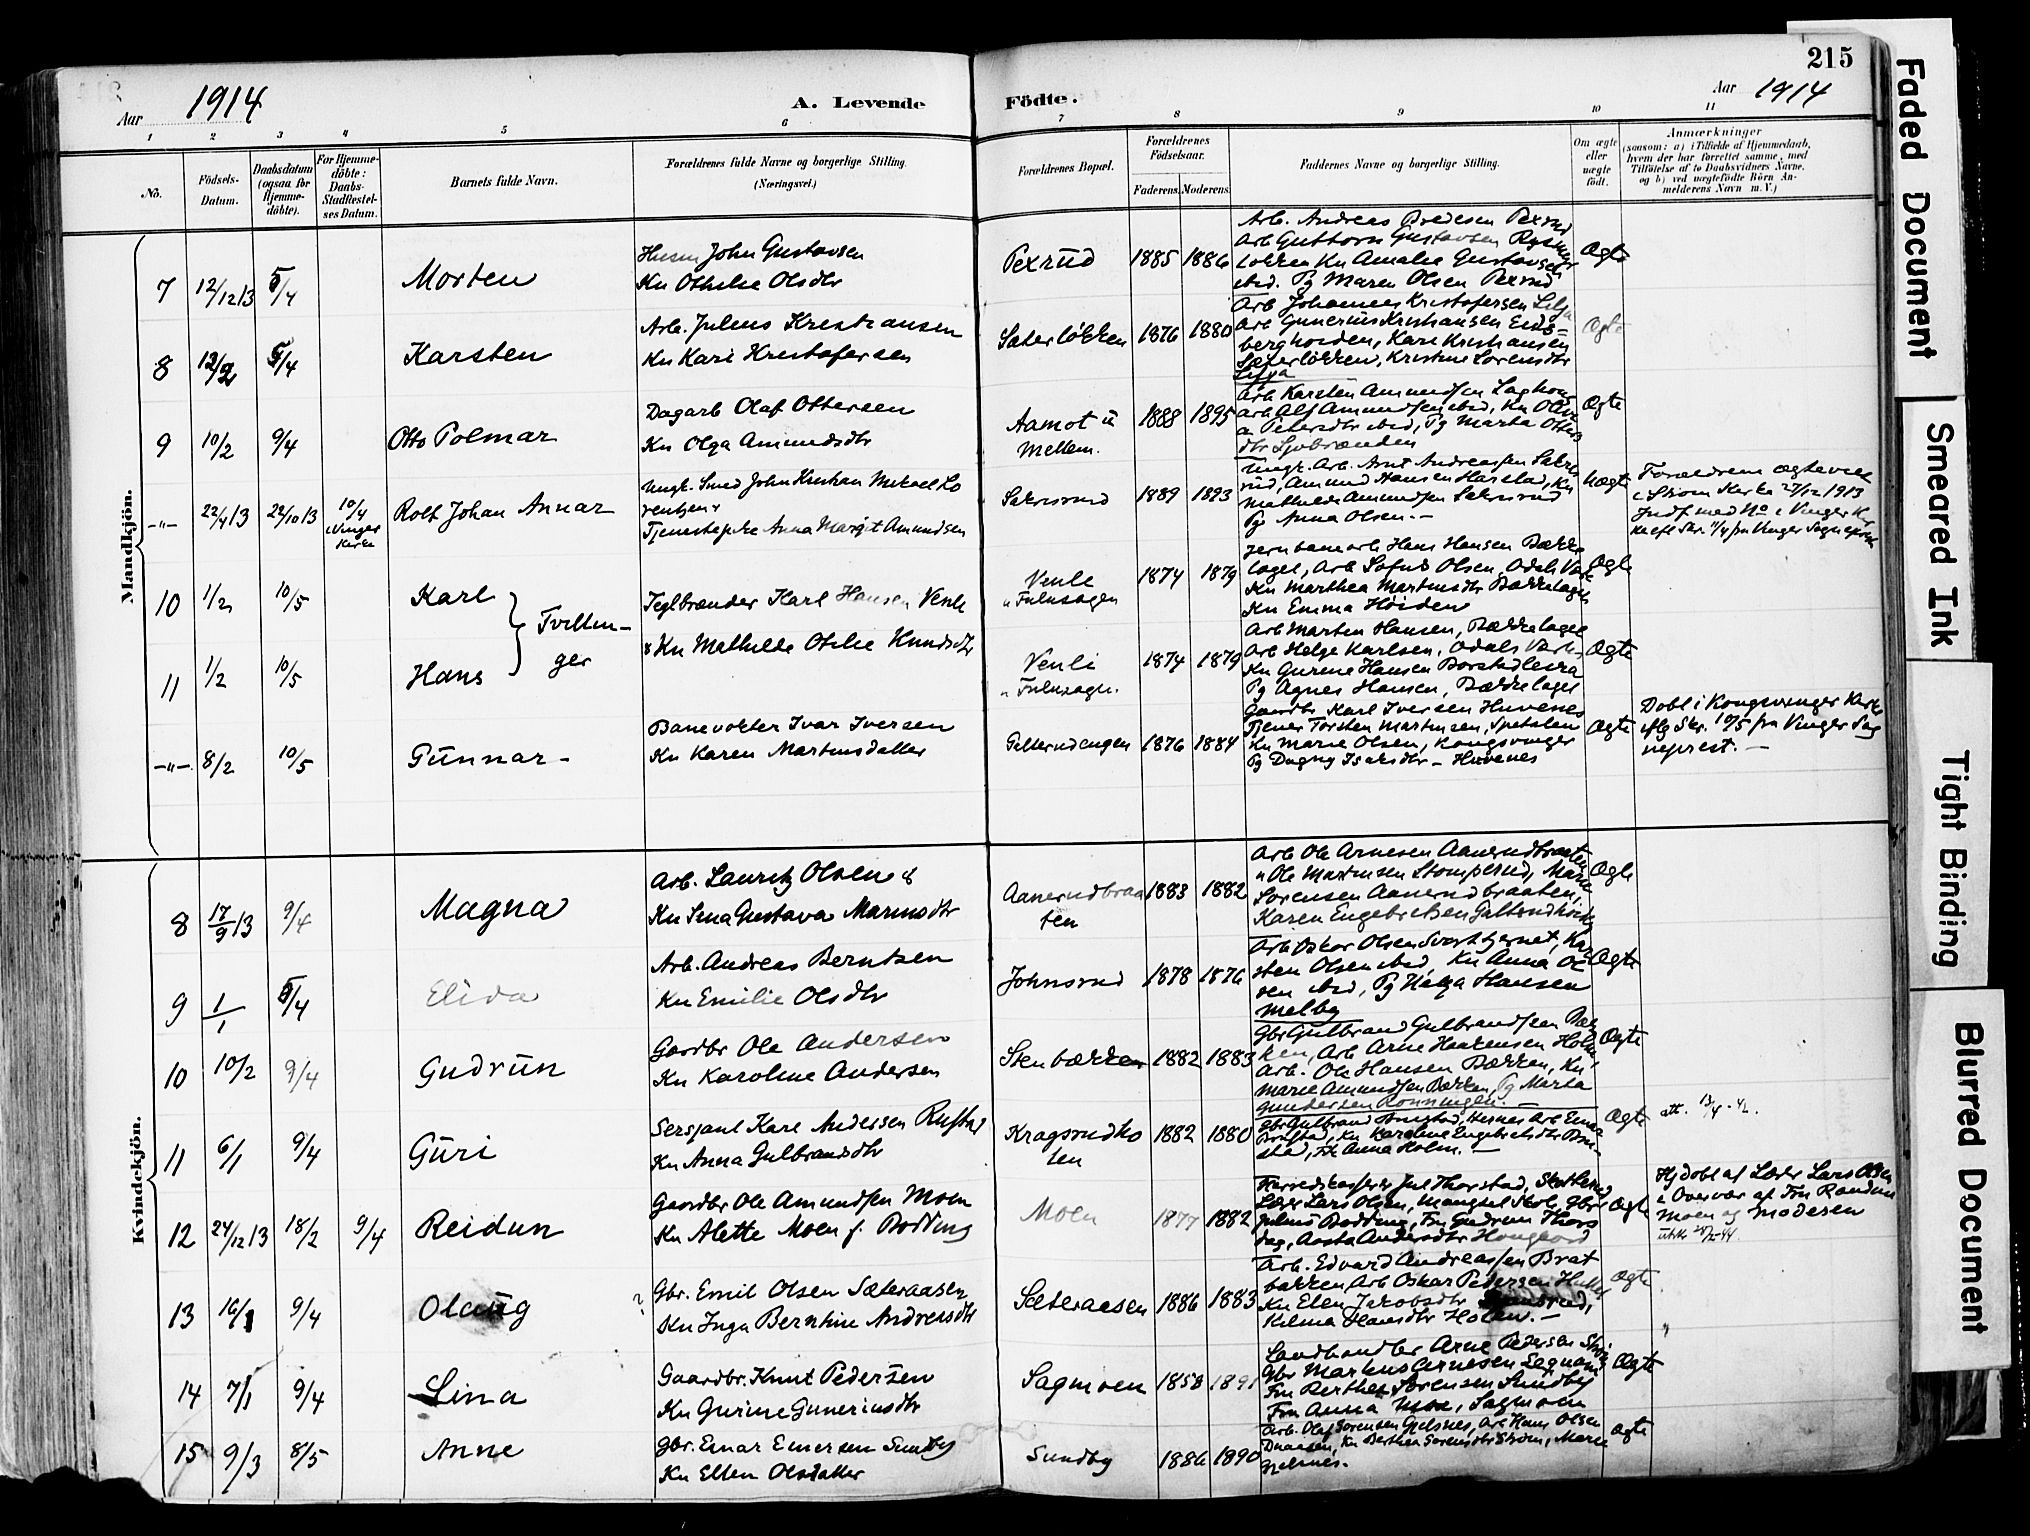 215
Aar 1914
A. Levende Födte.
Aar 1914
1 2 3 4 5 6 7 8 9 10 11
No.
Födsels-Datum.
Daabsdatum (ogsaa for Hjemme-döbte).
For Hjemme-döbte: Daabs-Stadfæstel-ses Datum.
Barnets fulde Navn.
Forældrenes fulde Navne og borgerlige Stilling.
(Næringsvei.)
Forældrenes Bopæl.
Forældrenes Födselsaar.
Faderens. Moderens.
Faddernes Navne og borgerlige Stilling.
Om ægte eller uægte födt.
Anmærkninger
(saasom: a) i Tilfælde af Hjemmedaab,
hvem der har forrettet samme, med
Tilföielse af to Daabsvidners Navne,
og b) ved uægtefödte Börn An-
melderens Navn m. V.)
Mandkjön.
7 12/12 13 5/4 Morten
John Gustavsen
Kn Othilie Olsdtr
Pexrud 1885 1886
Arb. Andreas Bredesen Pexrud
Arb Guttorm Gustavsen
løkken Kn Amalie Gustavsen
ibid. Pg Maren Olsen Pexrud
Ægte
8 5/4 Karsten
Arb. Julius Kristiansen
Kn Kari Kristofersen
Sæterløkken 1876 1880
Arb Johannes Kristofersen Lilja
Arb Gunerius Kristiansen Eids=
berghoiden, Kari Kristiansen
Sæterløkken, Kristine Lorensdtr
Lilja
Ægte
9 10/2 9/4 Otto Polmar
Dagarb Olaf Ottersen
Kn Olga Amundsdtr
Aamot u
Mellem.
1888 1895
Arb Karsten Amundsen
arb Alf Amundsen ibid, Kn
Petersdtr ibid, Pg Marta
dtr Sjøbrænden
Ægte
-"- 22/4 13 22/10 13 10/4 i Vinger Kirke
Rolf Johan Annar
Ungk. Smed John Kristian Mikael Lo
rentzen &
Anna Margit Amundsen
1889 1893
Ungk. Arb. Arnt Andreassen
Amund Hansen Harstad, Kn
Mathilde Amundsen
Pg Anna Olsen.-
Uægte
Forældrene ægteviet
i Strøm Kirke 27/12 1913
10 1/2 10/5 Karl
Tvillin-
ger
Teglbrænder Karl Hansen Venli
& Kn Mathilde Otilie Knudsdtr
Venli
1874 1879
Jernbanearb Hans Hansen Bække
laget, Arb Sofus Olsen, Odals Værk
Kn Marthea Martinsdtr Bækkelaget
Kn Emma Høiden
Ægte
11 1/2 10/5 Hans
Venli
1874 1879
Arb Martin Hansen, Bækkelaget
Arb Helge Karlsen, Odals Værk
Kn Gurine Hansen
Pg Agnes Hansen, Bækkelaget
Ægte
-"-. 8/2 10/5 Gunnar-
Banevokter Ivar Iversen
Kn Karen Martinsdatter
1876 1884
Gaardbr Karl Iversen Huvenes
Tjener Torsten Martinsen, Spetalen
Kn Marie Olsen, Kongsvinger
Pg Dagny Isaksdtr- Huvenes
Ægte
Døbt i Kongsvinger Kirke
iflg Skr. 10/5 fra Vinger Sog
neprest.-
Kvindekjön.
8 17/9 13 9/4 Magna
Arb. Lauritz Olsen &
Kn Sina Gustava Marinusdtr
Aanerudbraa
ten
1883 1882
Arb Ole Arnesen Aanerudbraaten
" Ole Martinsen Stomperud, Marie
Sørensen Aanerudbraaten,
Karen Engebretsen
Ægte
9 1/1 5/4 Elida
Arb. Andreas Berntsen
Kn Emilie Olsdtr
Johnsrud 1878 1876
Arb Oskar Olsen Svarttjernet, Kar
sten Olsen ibid, Kn Anna Ol
sen ibid, Pg Helga Hansen
Melby
Ægte
10 10/2 9/4 Gudrun
Gaardbr Ole Andersen
Kn Karoline Andersen
Stenbækken 1882 1883
Gbr Gulbrand Gulbrandsen Bæk
ken, Arb Arne Haakensen Holm,
Arb. Ole Hansen Bækken, Kn
Marie Amundsen Bækken, Pg Marta
Gundersen Rønningen.-
Ægte
11 6/1 9/4 Guri
Sersjant Kare Andersen Rustad
Kn Anna Gulbrandsdtr
Kragsrudko
ten
1882 1880
Kn Karoline Engebretsdtr
stad, Frk Anna Holm.-
Ægte
att. 13/4-42.
12 24/12 13 18/2 9/4 Reidun
Gaardbr Ole Amundsen Moen
Kn Alette Moen f. Bodding
Moen 1877 1882
Herredskasserer Thorstad,
Lærer Lars Olsen, Gbr
Julius Bodding, Fru Gudrun Thors
tad, Aasta Andersdtr
Ægte
Hjdøbt af Lærer Lars Olsen
i Overvær af Fru Randine
Moen og Moderen
13 16/1 9/4 Olaug
Gbr. Emil Olsen Sæteraasen
Kn Inga Berntine Andreasdtr
Sæteraasen 1886 1883
Arb. Edvard Andreassen Brat
bakken Arb Oskar Pedersen
Kn Elen Jakobsdtr
Hansdtr Holen.-
Ægte
14 7/1 9/4 Lina
Gaardbr. Knut Pedersen
Kn Gurine Guneriusdtr
Sagmoen 1858 1891
Landhandler Arne Pedersen
Gbr Markus Arnesen Sagmoen
Fru Berthe Sørensen Sundby
Fru Anna Moe, Sagmoen
Ægte
15 9/3 8/5 Anne
Gbr. Einar Einersen Sundby
Kn Ellen Olsdatter
Sundby 1886 1890
Arb. Olaf Sørensen Gjelsnes, Arb Hans Olsen
Kn Berthea Sørensdtr Strøm, Marie
Gjelsnes.
Ægte
Faded Document
Smeared Ink
Tight Binding
Blurred Document